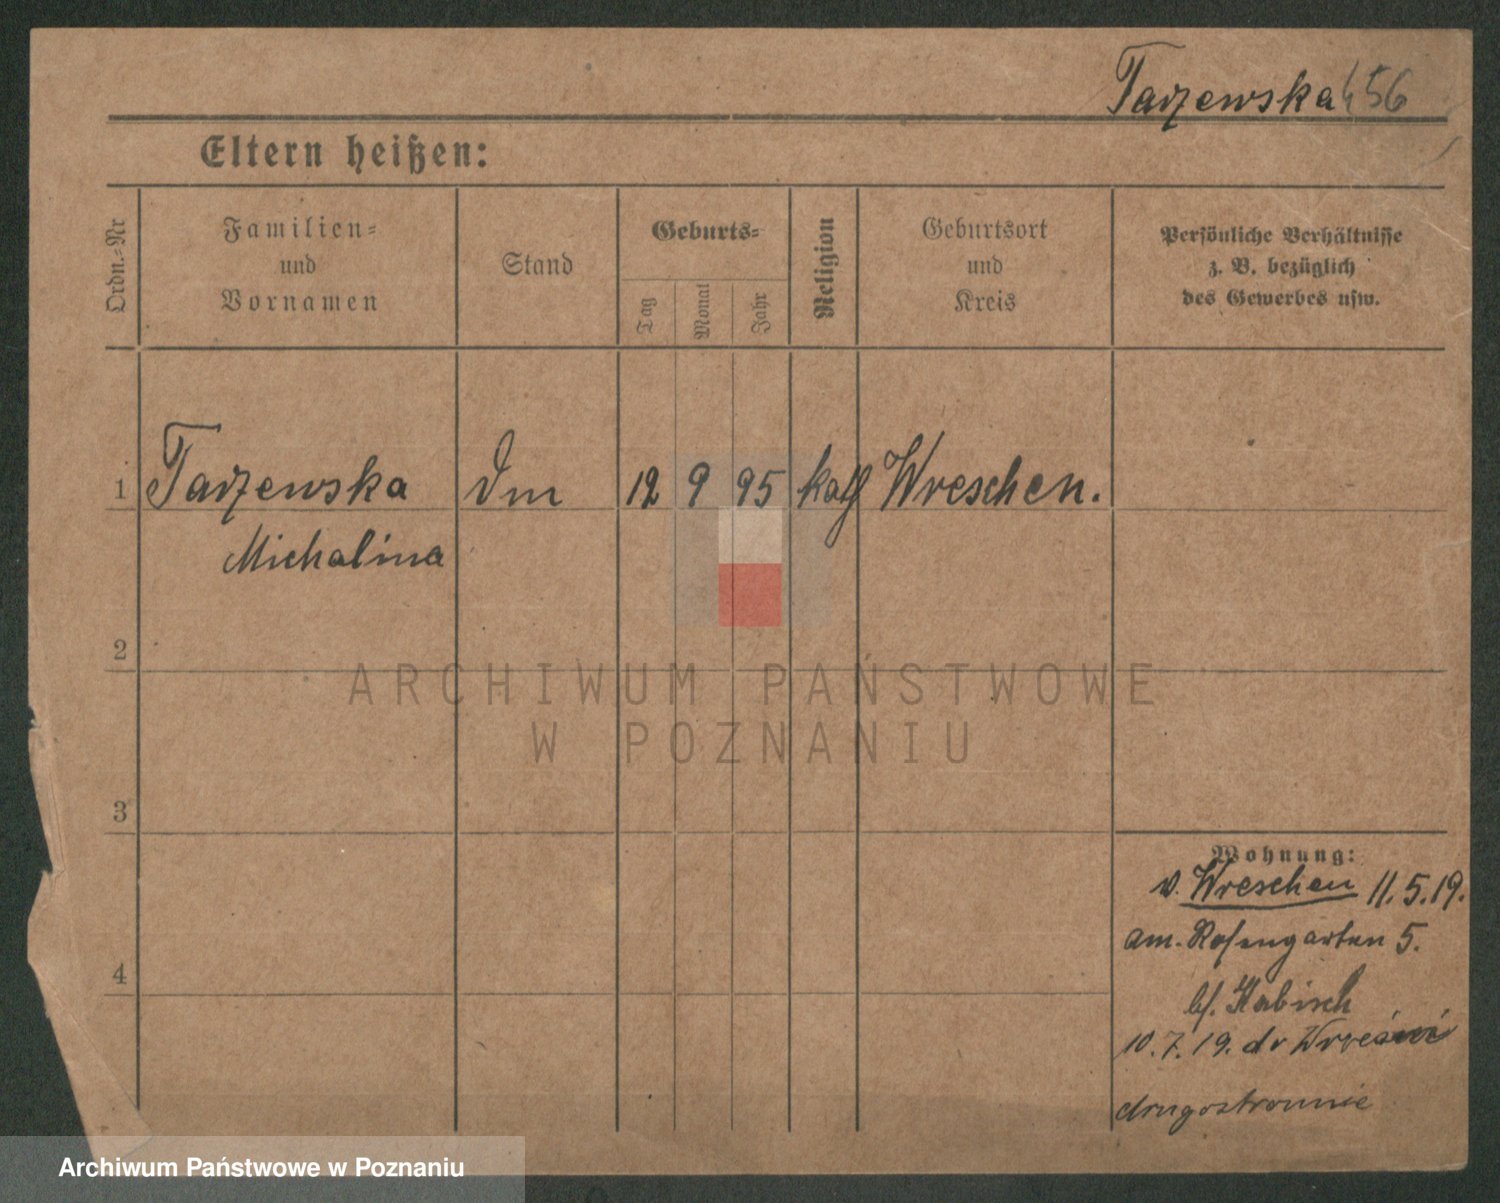 Tarzewska 456
Eltern heißen:
Ordn.-Nr
Familien-
und
Vornamen
Stand
Geburts-
Tag
Monat
Jahr
Religion
Geburtsort
und
Kreis
Persönliche Verhältnisse
z. B. bezüglich
des Gewerbes usw.
1 Tarzewska 12 9 95 kath Wreschen.
Michalina
2
3
4
Wohnung:
v. Wreschen 11.5.19.
am. Rosengarten 5.
b/.
10.7.19. do
drugostronnie
ARCHIWUM PAŃSTWOWE
W POZNANIU
Archiwum Państwowe w Poznaniu